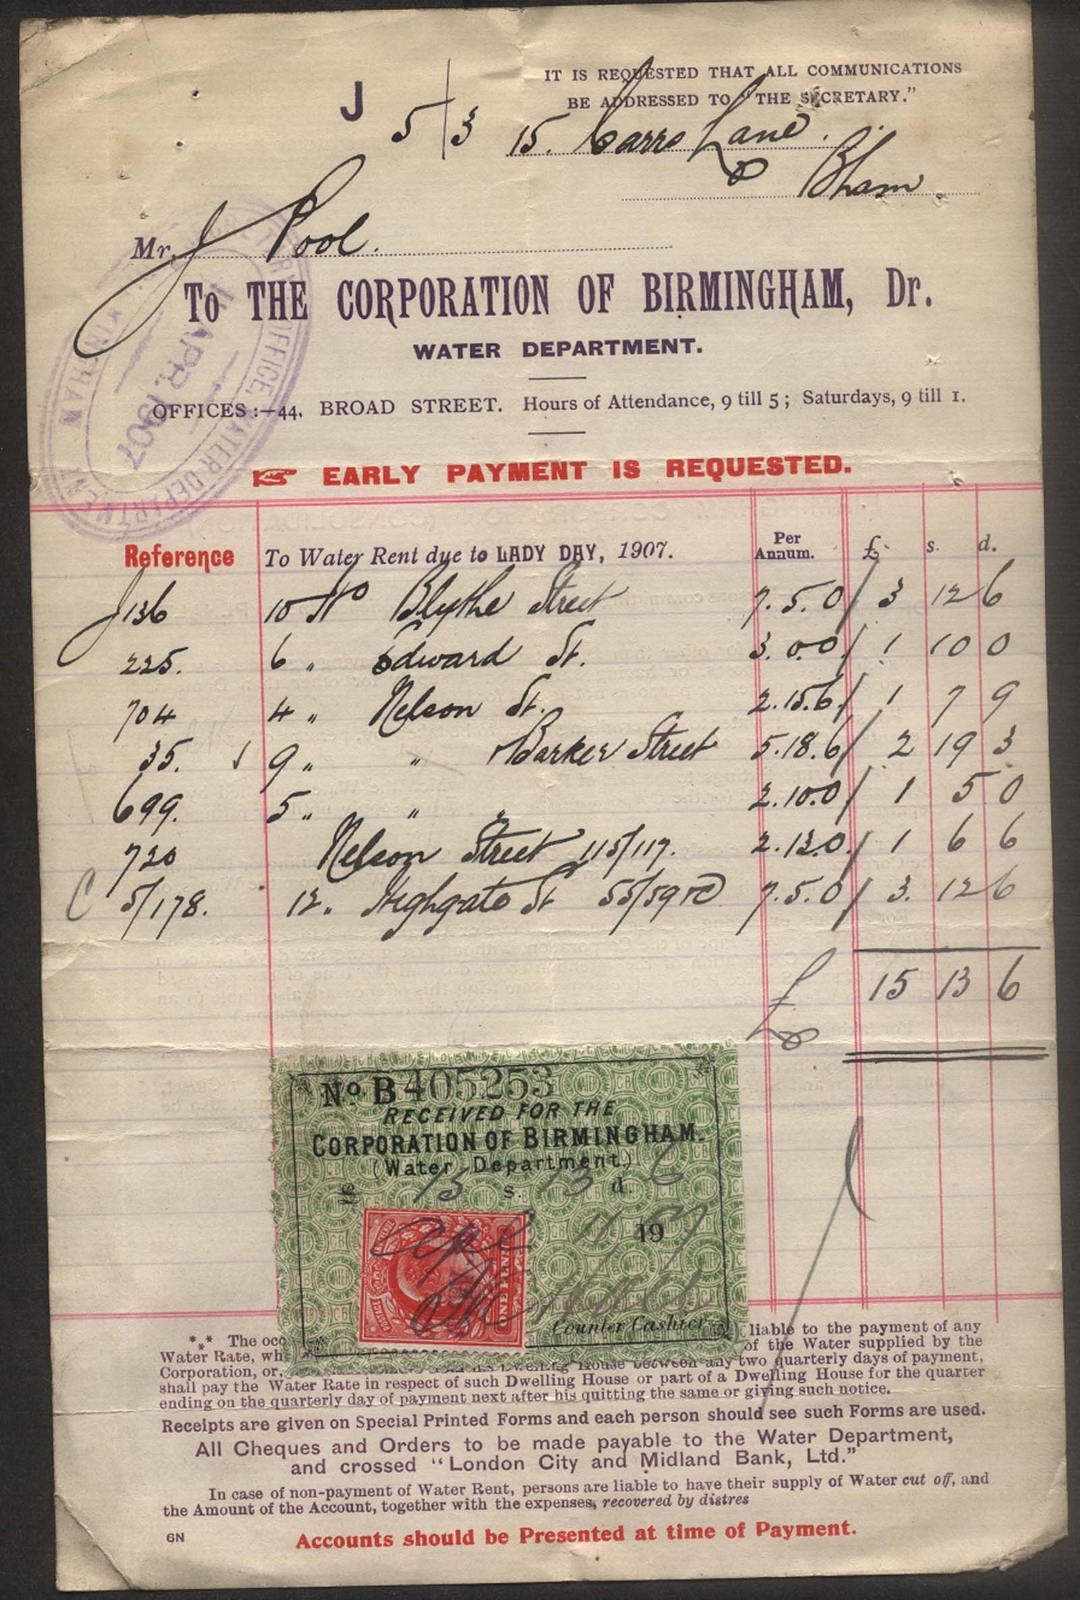 IT IS REQUESTED THAT ALL COMMUNICATIONS
BE ADDRESSED TO "THE SECRETARY."
J
5/3 15. Carrs Lane.
Bham.
Mr. J Pool.
To THE CORPORATION OF BIRMINGHAM, Dr.
WATER DEPARTMENT.
OFFICES:—44, BROAD STREET. Hours of Attendance, 9 till 5; Saturdays, 9 till 1.
APR. 1907
OFFICE, WATER DEPARTMENT
☞ EARLY PAYMENT IS REQUESTED.
Reference To Water Rent due to LADY DAY, 1907. Per Annum. £ s. d.
J 136 10 Ho Blythe Street 7.5.0/ 3 12 6
225. 6 " Edward St. 3.0.0/ 1 10 0
704 4 " Nelson St. 2.15.6/ 1 7 9
35. 9 " " Barker Street 5.18.6/ 2 19 3
699. 5 " " " 2.10.0/ 1 5 0
720 Nelson Street 115/117. 2.13.0/ 1 6 6
C 5/178. 12. Highgate St 55/59 7.5.0/ 3. 12 6
£ 15 13 6
No B 405253
RECEIVED FOR THE
CORPORATION OF BIRMINGHAM.
(Water Department.)
£ 15 s. 13 d. 6
Apl 11 1907
ONE PENNY
Counter Cashier
*** The occ liable to the payment of any
Water Rate, wh of the Water supplied by the
Corporation, or, Dwelling House between any two quarterly days of payment,
shall pay the Water Rate in respect of such Dwelling House or part of a Dwelling House for the quarter
ending on the quarterly day of payment next after his quitting the same or giving such notice.
Receipts are given on Special Printed Forms and each person should see such Forms are used.
All Cheques and Orders to be made payable to the Water Department,
and crossed "London City and Midland Bank, Ltd."
In case of non-payment of Water Rent, persons are liable to have their supply of Water cut off, and
the Amount of the Account, together with the expenses, recovered by distres
6N Accounts should be Presented at time of Payment.